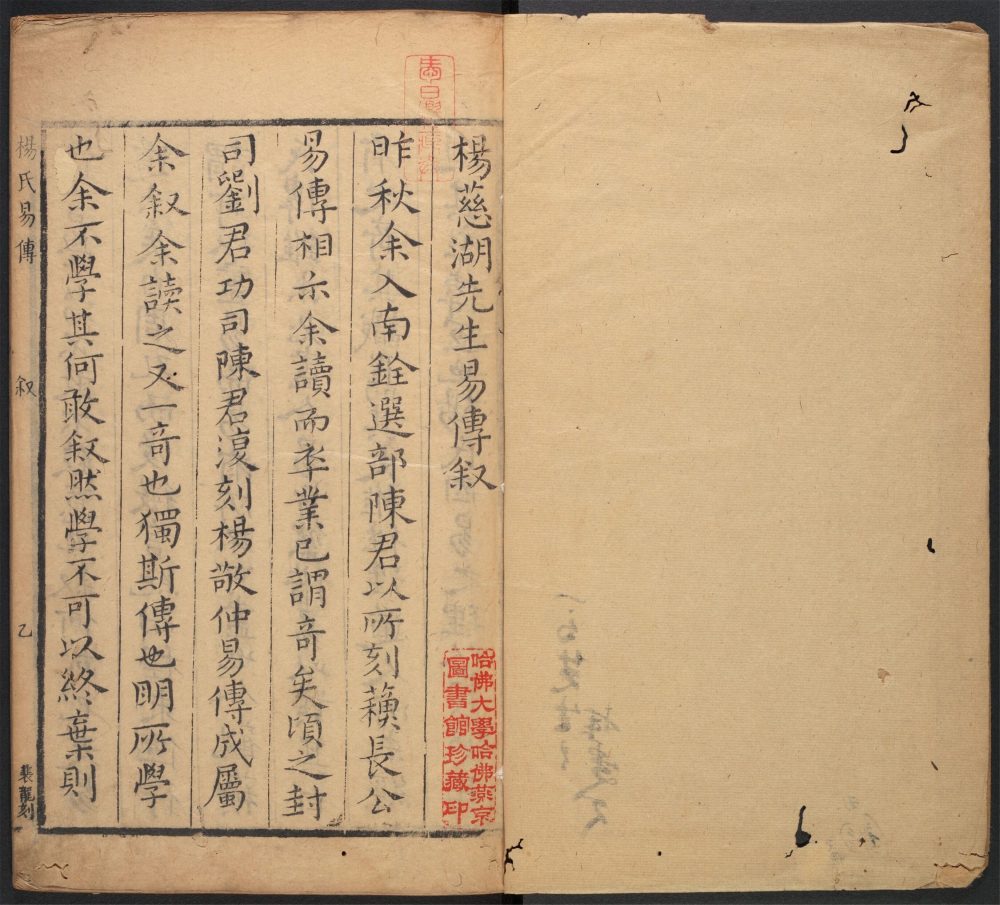 楊慈湖先生易傳叙
昨秋余入南銓選部陳君以所刻蘓長公
易傳相示余讀而卒業已謂竒矣頃之封
司劉君功司陳君復刻楊敬仲易傳成屬
余叙余讀之又一竒也獨斯傳也明所學
也余不學其何敢叙然學不可以終棄則
楊氏易傳
叙
乙
裴龍刻
哈佛大學哈佛燕京
圖書館珍藏印